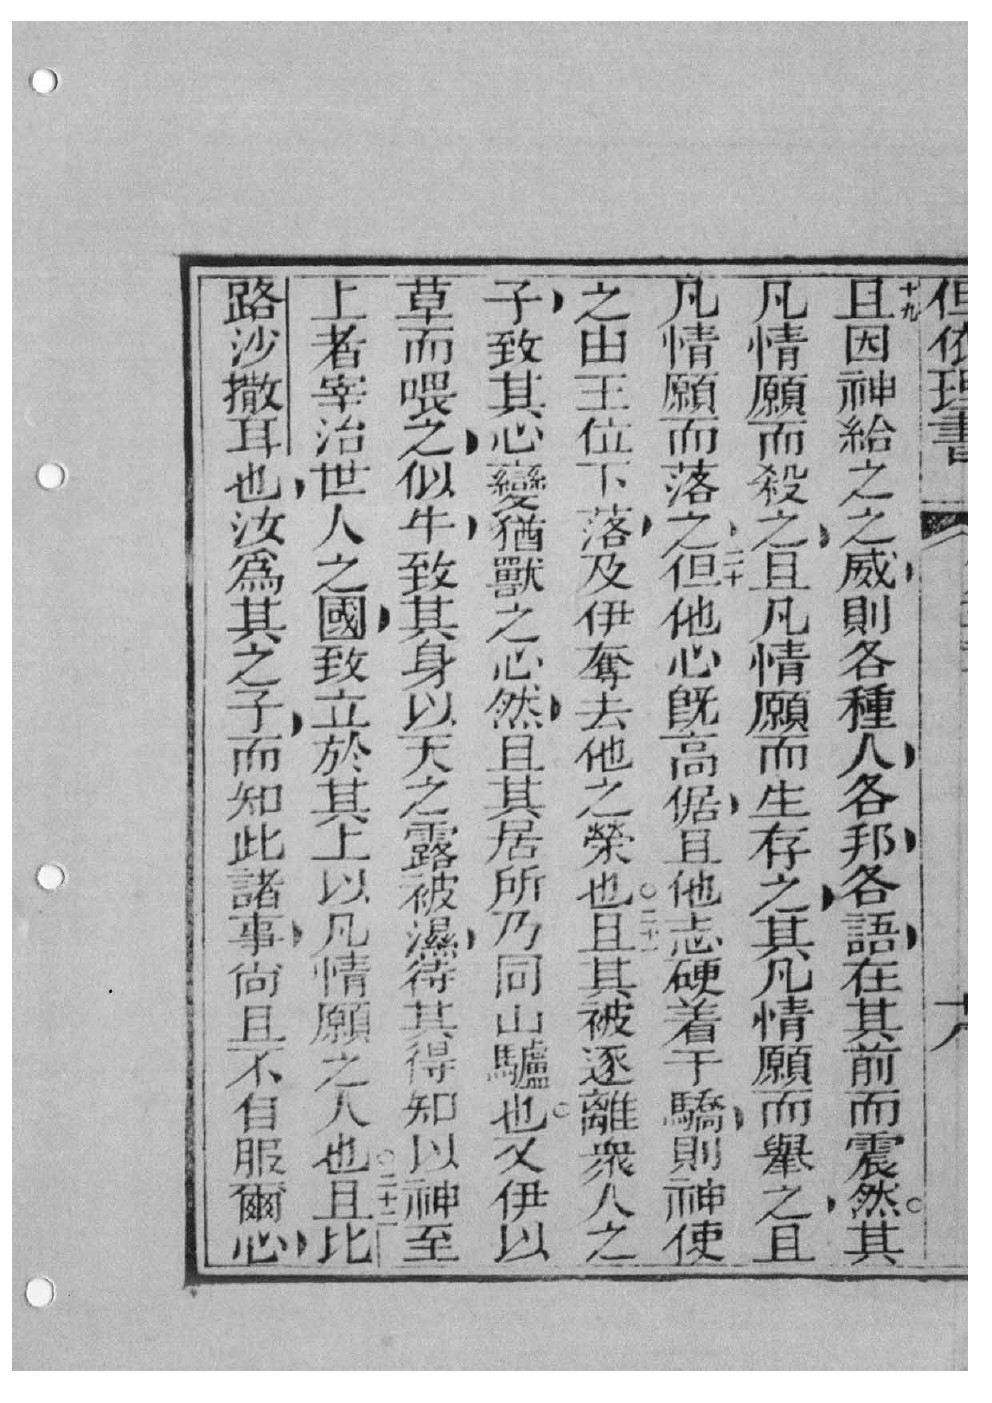 但依理書
十九
且因神給之之威則各種人各邦各語在其前而震然。其
凡情願而殺之且凡情願而生存之其凡情願而舉之且
凡情願而落之二十但他心既高倨且他志硬着于驕則神使
之由王位下落及伊奪去他之榮也。二十一且其被逐離衆人之
子致其心變猶獸之心然且其居所乃同山驢也。又伊以
草而喂之似牛致其身以天之露被濕待其得知以神至
上者宰治世人之國致立於其上以凡情願之人也。二十二且比
路沙撒耳也汝爲其之子而知此諸事尙且不自服爾心